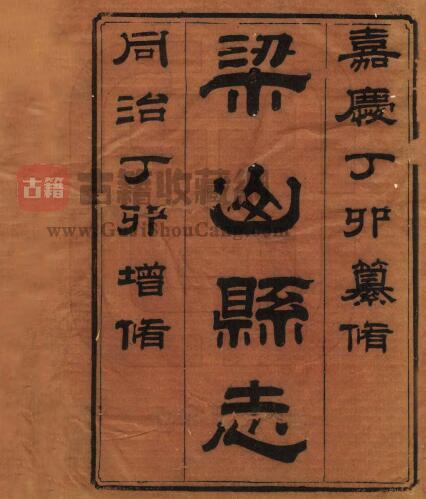 嘉慶丁卯纂脩
梁山縣志
同治丁卯增脩
古籍
古籍收藏网
www.GuJiShouCang.com